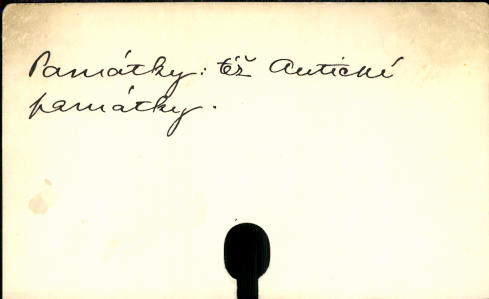 Památky: též Antické
památky.